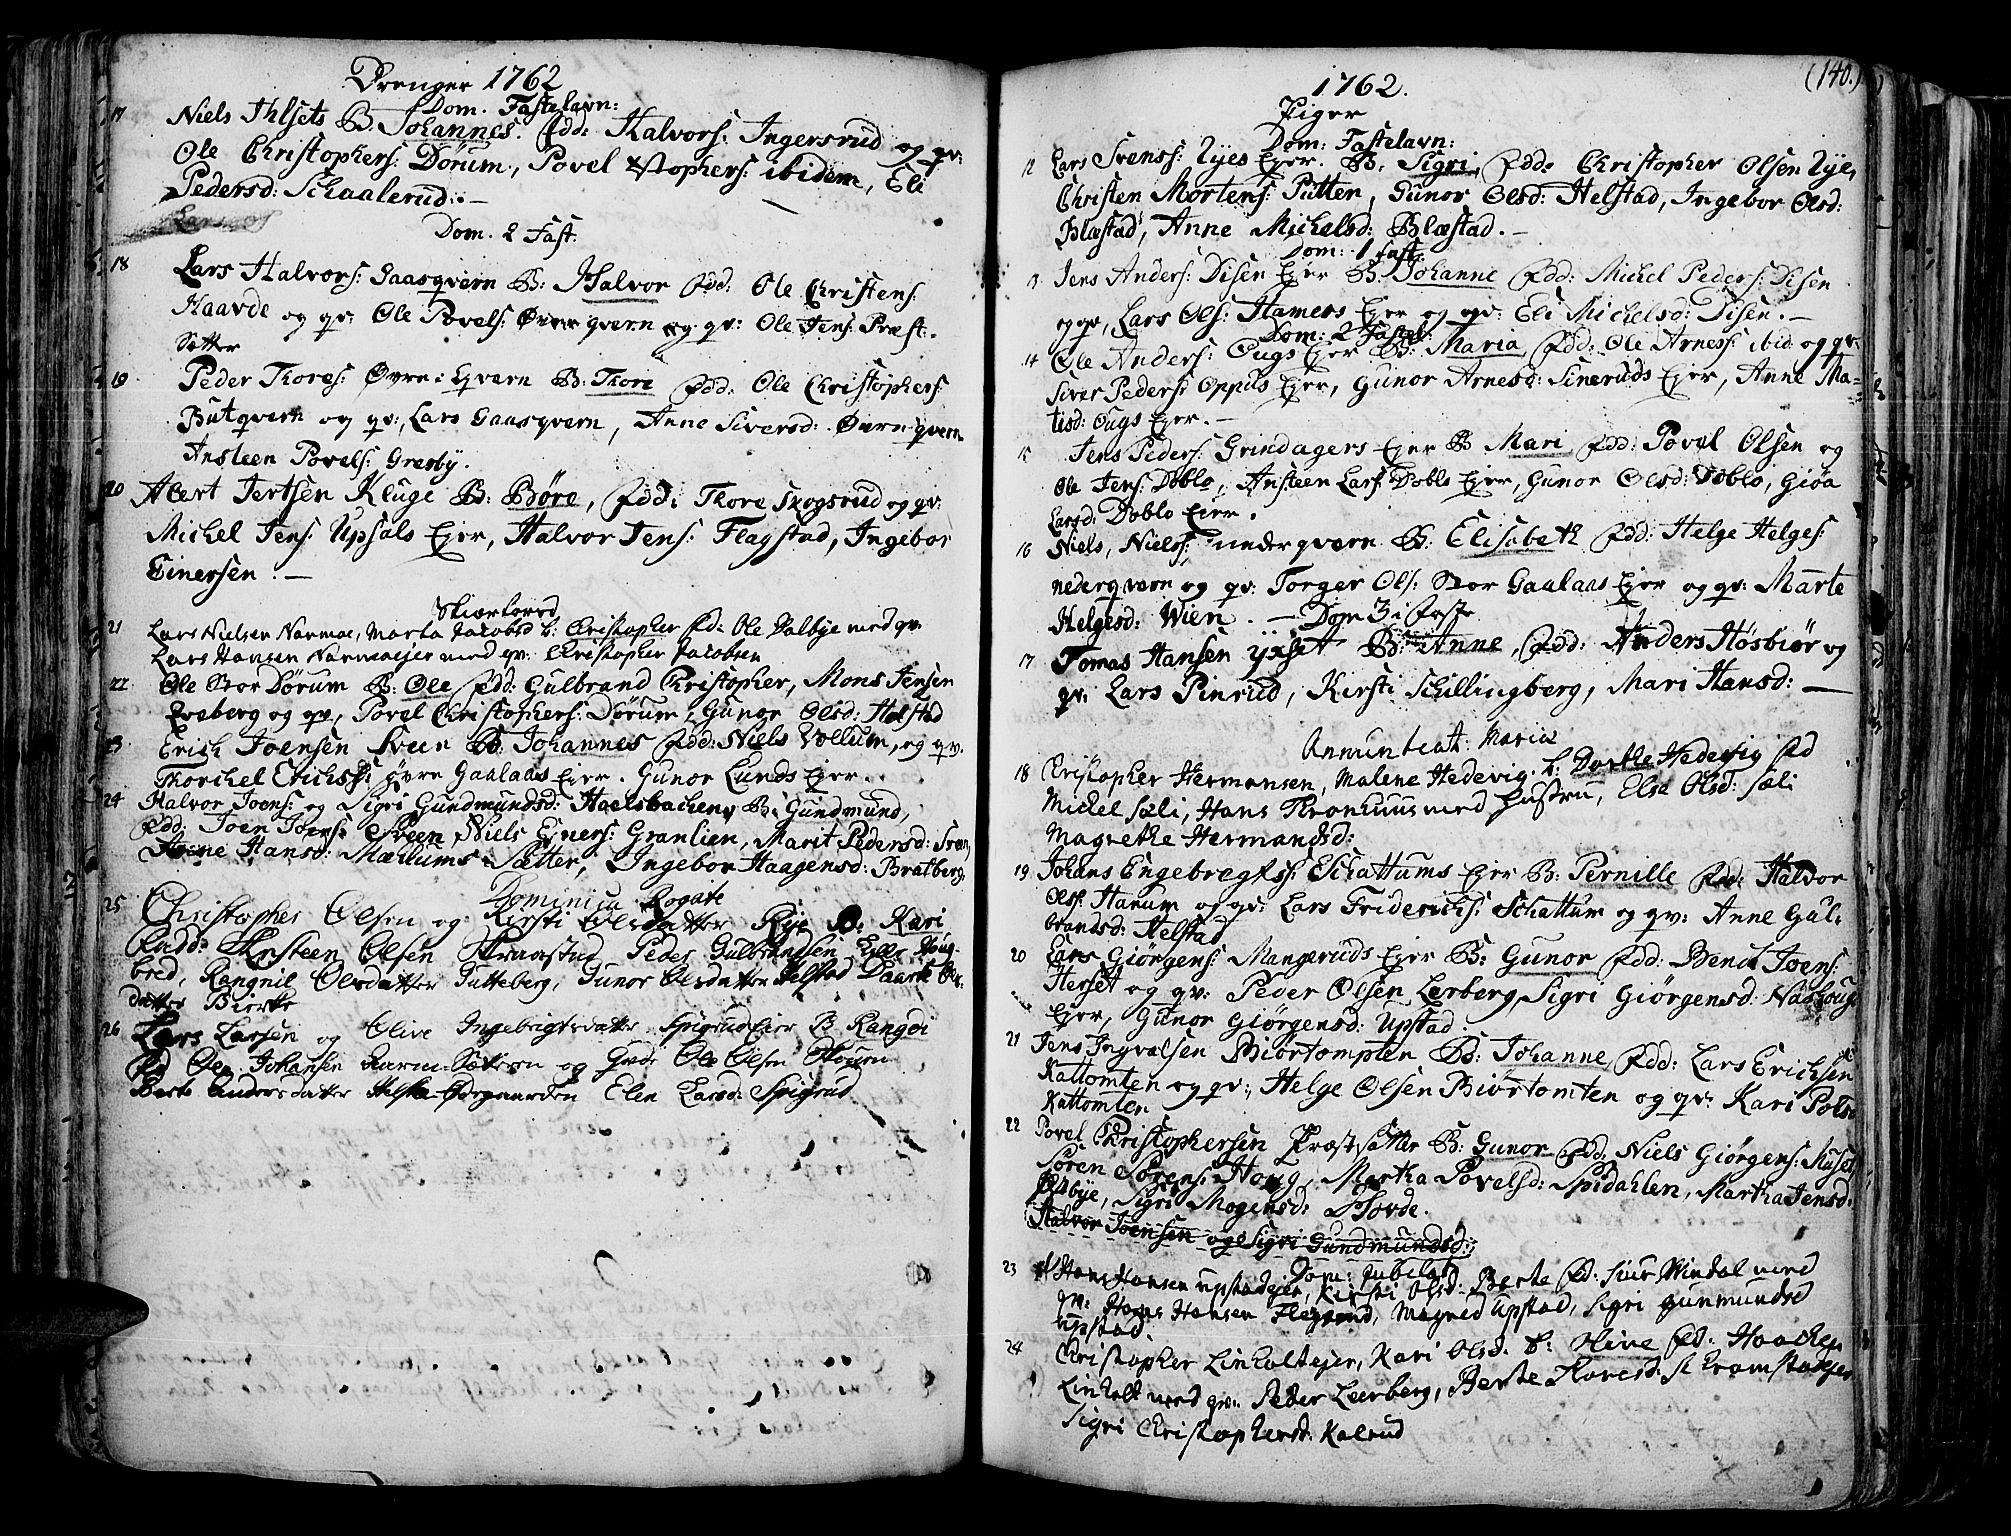 Drenger 1762
Dom. Fastelavn:
17 Niels Ihlsets B. Johannes. Fdd: Halvors: Ingersrud og qv:
Ole Christophers: Dørum, Povel Xstophers: ibidem, Eli
Pedersd: Schaalerud. —
Dom. 2 Fast:
18 Lars Halvors: Gaasqvern B: Halvor Fdd: Ole Christens:
Haavde og qv: Ole Povels: Øvre qvern og qv: Ole Jens: Præst-
Sætter
19 Peder Thores: Øvre: Qvern B: Thore Fdd: Ole Christophers
Butqvern og qv:, Lars Gaasqvern, Anne Siversd: Øvre qvern
Ansteen Povels: Gresby.
20 Alert Jertsen Kluge B: Børe, Fdd: Thore Skogsrud og qv:
Michel Jens: Upsals Ejer, Halvor Jens: Flagstad, Ingebor
Einersen. —
Skiærtorsd
21 Lars Nielsen Narmoe, Marta Jacobsd b: Christopher Fd: Ole Valbye med qv
Lars Hansen Narmoeejer med qv: Christopher Jacobsen
22 Ole Stor Dørum B: Ole Fdd: Gulbrand Christopher, Mons Jensen
Eveberg og qv, Povel Christophers: Dørum, Gunor Olsd: Helstad
23 Erich Joensen Sveen B: Johannes Fdd: Niels Vollum, og qv.
Thorchel Erichs: øvre Gaalaas Ejer. Gunor Lunds Ejer.
24 Halvor Joens: og Sigri Gundmundsd: Haelsbachen, B: Gundmund,
Fdd: Joen Joens: Sveen, Niels Eners: Granlien, Marit Pedersd: Sveen,
Anne Hansd: Mællums-Sætter, Ingebor Haagensd: Bratberg,
Dominica Rogate
25 Christopher Olsen og Kirsti Olsdatter Rye B: Kari
Fadd: Christeen Olsen Peder Gulbrandsen
bred, Rangnil Olsdatter Gutteberg, Gunor Olsdatter Helstad Daarte Ols
datter Bierke
26 Lars Larsen og Olive Ingebrigtsdatter Spigrud Eier B Rangdi
Fd Ole Johansen Sætteren og Ole Olsen
Berte Andersdatter Ødegaarden Elen Larsd: Spigrud
(140.)
1762.
Piger
Dom: Fastelavn:
12 Lars Svens: Ryes Ejer. B: Sigri, Fdd: Christopher Olsen Rye,
Christen Mortens: Putten, Gunor Olsd: Helstad, Ingebor Olsd:
Blæstad, Anne Michelsd: Blæstad. —
Dom: 1 Fast:
13 Jens Anders: Disen Ejer B: Johanne Fdd: Michel Peders: Disen
og qv, Lars Ols: Hamers Ejer og qv: Eli Michelsd: Disen. —
Dom: 2 Fastel:
14 Ole Anders: Ougs Ejer B: Maria Fdd: Ole Arness: ibid: og qv:
Siver Peders: Oppus Ejer, Gunor Arnesd: Sineruds Ejer, Anne Ma-
tisd: Ougs Ejer. —
15 Jens Peders: Grindagers Ejer B: Mari Fdd: Povel Olsen og
Ole Jens: Doblo, Ansteen Lars: Doblo Ejer, Gunor Olsd: Doblo, Gioa
Larsd: Doblo Ejer.
16 Niels, Niels: nederqvern B: Elisabeth Fdd: Helge Helges:
nederqvern og qv: Torger Ols: Stor Gaalaas Ejer og qv: Marte
Helgesd: Wien. — Dom 3 i Faste
17 Tomas Hansen Yxset B: Anne, Fdd: Anders Høsbiør og
qv: Lars Pinrud, Kirsti Schillingberg, Mari Hansd: —
Annuntiat: Mariæ
18 Christopher Hermansen, Malene Hedevig. b: Dorthe Hedevig Fd
Michel Sæli, Hans Thronhuus med Hustru, Else Olsd: Sæli
Magrethe Hermandsd:
19 Johans Engebregts: Schattums Ejer B: Pernille Fdd: Halvor
Ols: Harum og qv: Lars Friderichs: Schattum og qv: Anne Gul-
brandsd: Helstad
20 Lars Giørgens: Mangeruds Ejer B: Gunor Fdd: Bendt Joens:
Herset og qv: Peder Olsen Lerberg, Sigri Giørgensd: Nashoug
Ejer, Gunor Giørgensd: Upstad.
21 Jens Ingvalsen Biørtompten B: Johanne, Fdd: Lars Erichsen
Kattomten og qv:, Helge Olsen Biørtomten og qv: Kari Pols
Kattomten
22 Povel Christophersen Præstsætter B: Gunor Fdd: Niels Giørgens: Muset,
Søren Sørens: Houg, Martha Povelsd: Spidahlen, Martha Jensd:
Olsbye, Sigri Mogensd: Hovde.
Halvor Joensen og Sigri Gundmundsd:
Dom: Jubilat
23 Hans Hansen Upstadejer, Kirsti Olsd: Berte Fd: Siur Windal med
qv: Hans Hansen Flegrund, Magned Upstad, Sigri Gunmundsd
Upstad.
24 Christopher Linholtejer, Kari Olsd. b: Olive Fd: Haachen
Linholt med qv: Peder Leerberg, Berte Thoresd: Schramstadejer
Sigri Christophersd: Kalrud